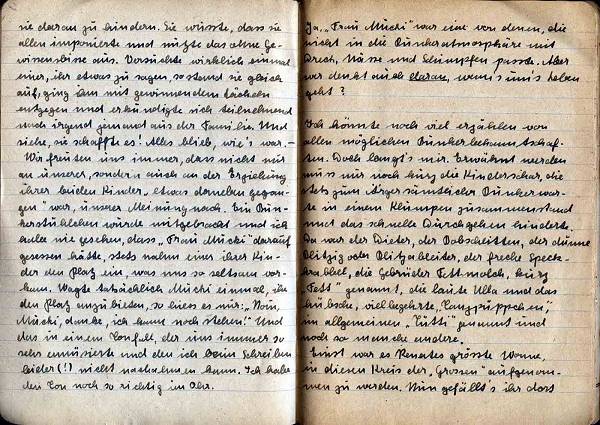 sie daran zu hindern. Sie wusste, dass sie
allen imponierte und nützte das ohne Ge-
wissensbisse aus. Versuchte wirklich einmal
einer, ihr etwas zu sagen, so stand sie gleich
auf, ging ihm mit gewinnendem Lächeln
entgegen und erkundigte sich teilnehmend
nach irgend jemand aus der Familie. Und
siehe, sie schaffte es! Alles blieb, wie's war. -
Wir freuten uns immer, dass nicht nur
an unserer, sondern auch an der Erziehung
ihrer beiden Kinder „etwas daneben gegan-
gen" war, unserer Meinung nach. Ein Bun-
kerstühlchen wurde mitgebracht und ich
habe nie gesehen, dass „Frau Mucki" darauf
gesessen hätte, stets nahm einer ihrer Kin-
der den Platz ein, was uns so seltsam vor-
kam. Wagte tatsächlich Mucki einmal, ihr
den Platz anzubieten, so hiess es nur: „Nein,
Mucki, danke, ich kann noch stehen!" Und
das in einem Tonfall, der uns immer so
sehr amüsierte und den ich beim Schreiben
leider (!) nicht nachahmen kann. Ich habe
den Ton noch so richtig im Ohr.
Ja, „Frau Mucki" war eine von denen, die
nicht in die Bunkeratmosphäre mit
Dreck, Nässe und Schimpfen passte. Aber
wer denkt auch daran, wenn's um's Leben
geht?
Ich könnte noch viel erzählen von
allen möglichen Bunkerbekanntschaf-
ten. Doch langt's mir. Erwähnt werden
muss nur noch kurz die Kinderschar, die
stets zum Ärger sämtlicher Bunkerwar-
te in einem Klumpen zusammenstand
und das schnelle Durchgehen hinderte.
Da war der Dieter, der Bobscheitten, der dünne
Blitzig oder Blitzableiter, der freche Speck-
krabbel, die Gebrüder Fettmolch, kurz
„Fett" genannt, die laute Ulla und das
hübsche, vielbegehrte „Tanzpüppchen",
im allgemeinen „Tutti" genannt und
noch so manche andere.
Einst war es Renates grösste Wonne,
in diesen Kreis der „Grossen" aufgenom-
men zu werden. Nun gefällt's ihr dort